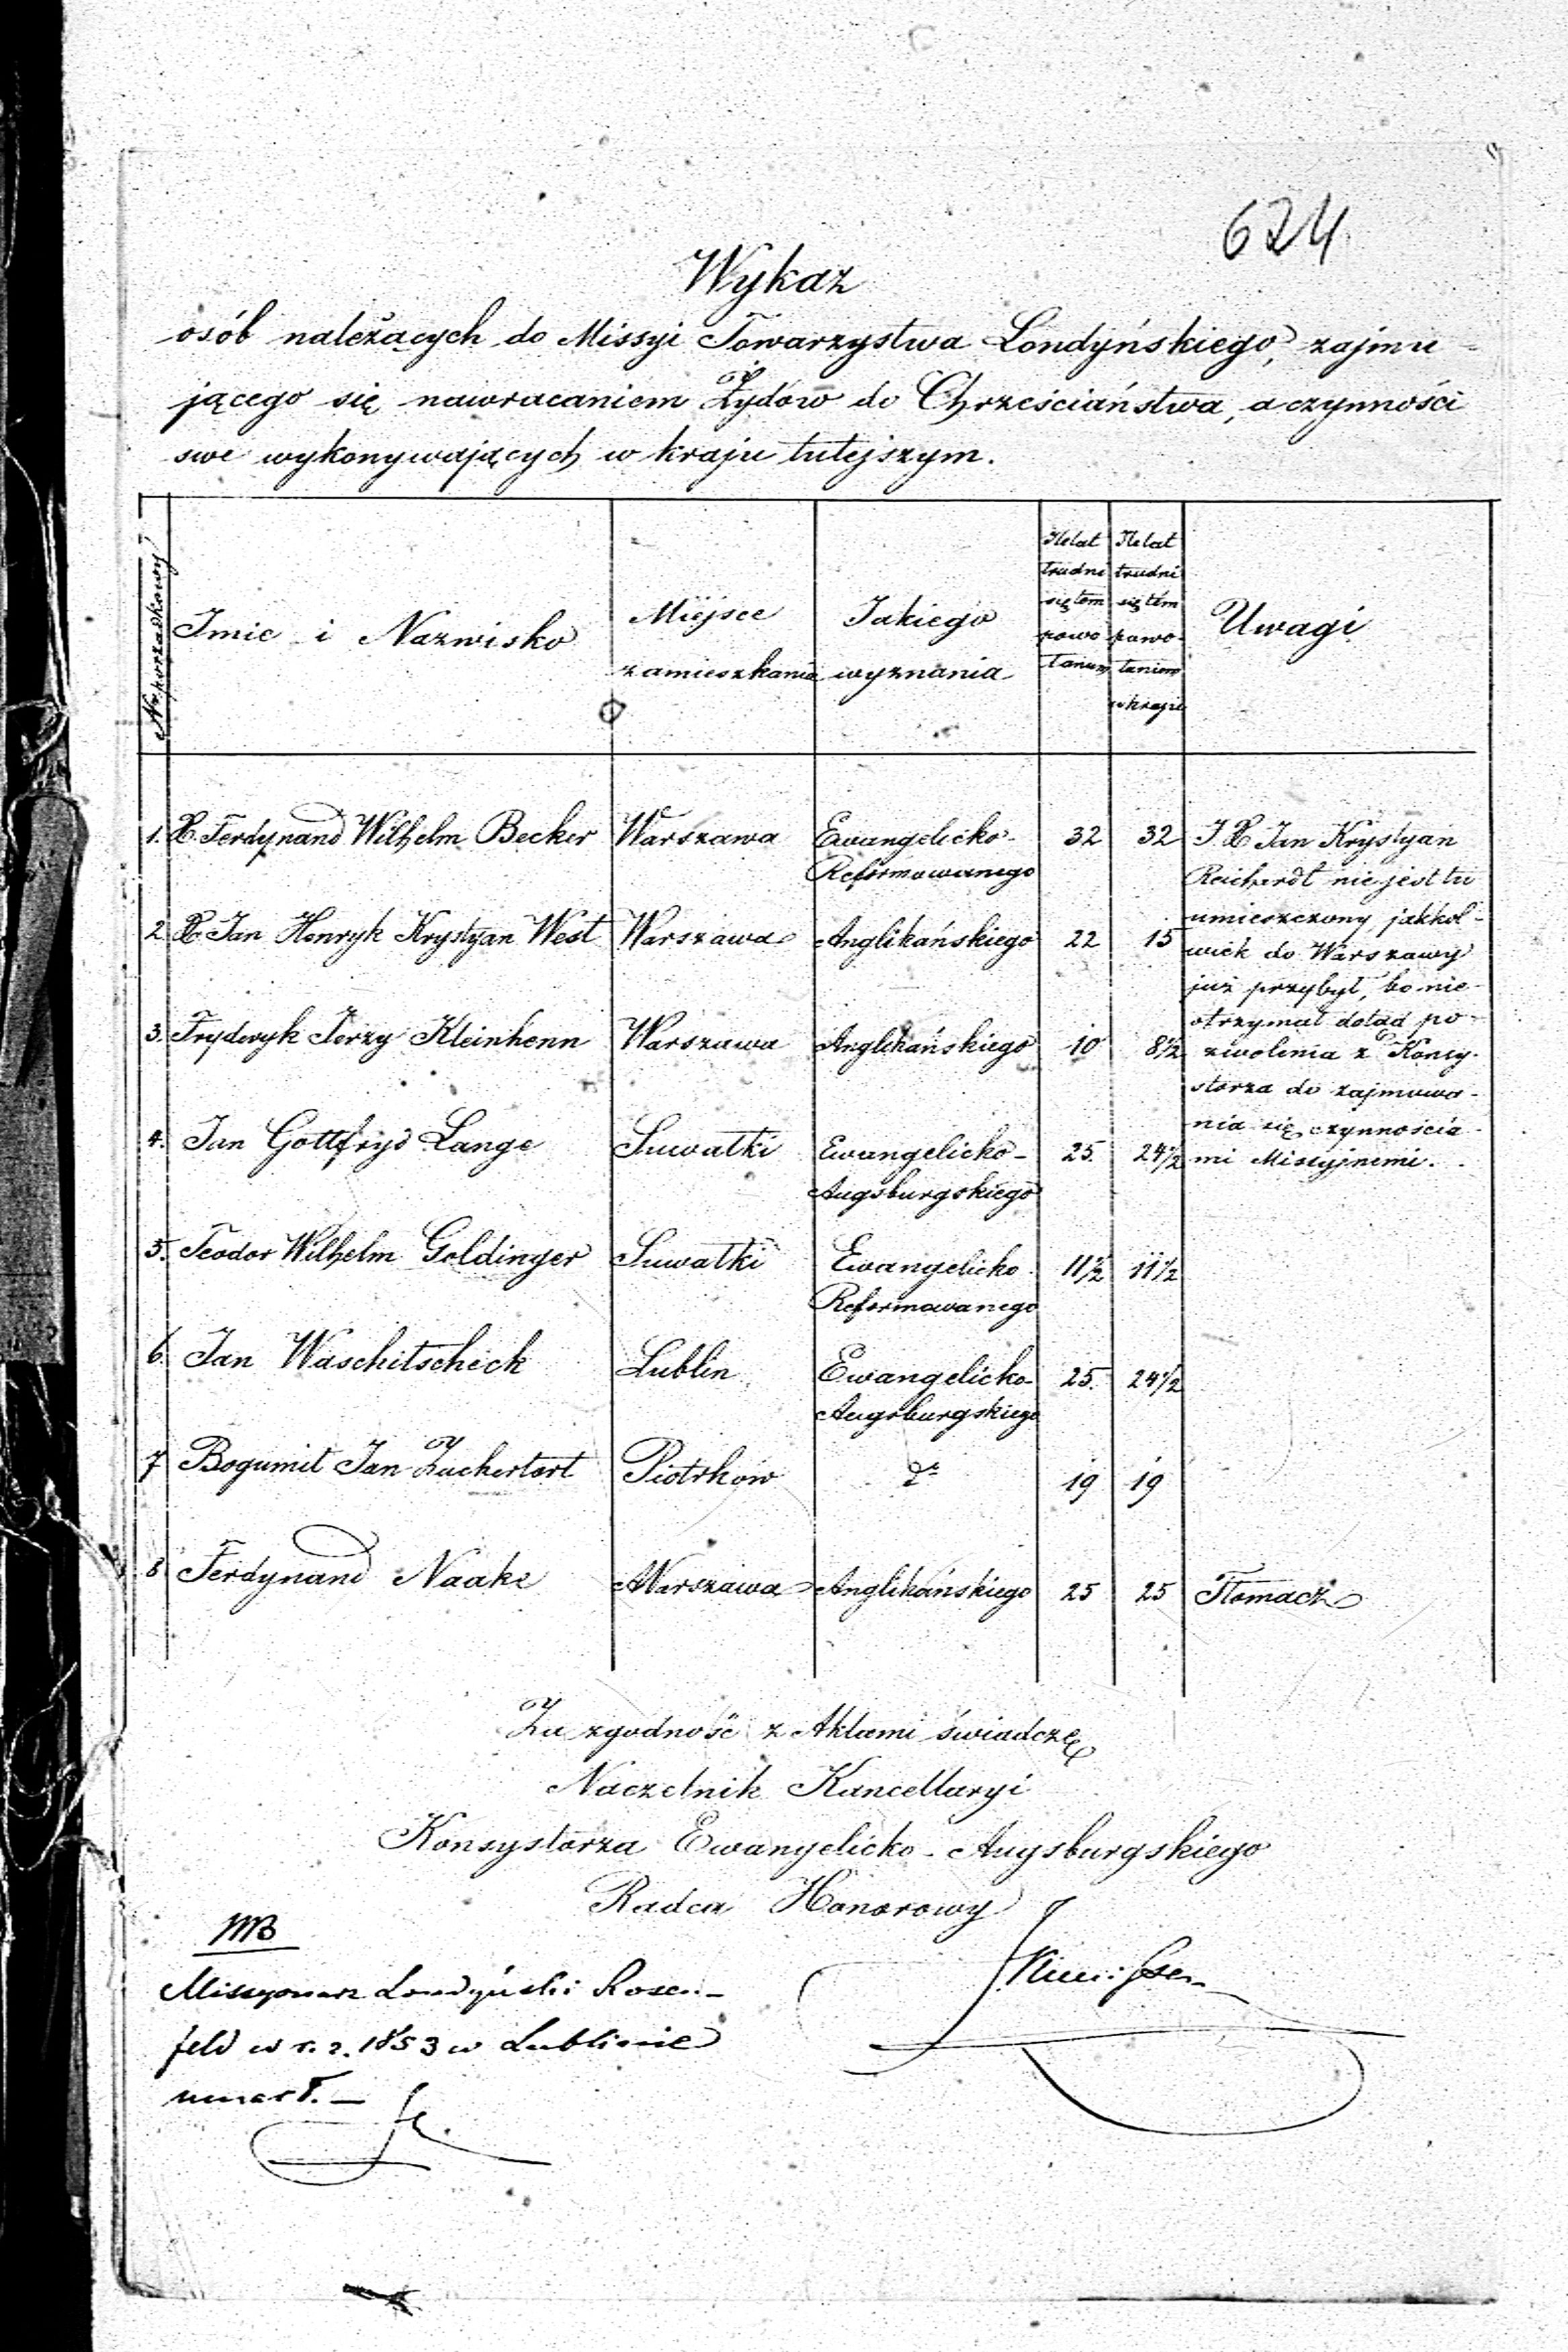 624
Wykaz
osób należących do Missyi Towarzystwa Londyńskiego, zajmu-
jącego się nawracaniem Żydów do Chrześciaństwa, a czynności
swe wykonywających w kraju tutejszym.
Nr porządkowy
Imie i Nazwisko
Miejsce
zamieszkania
Jakiego
wyznania
Ile lat
trudni
się tem
powo
łaniem
Ile lat
trudni
się tem
powo-
łaniem
w kraju
Uwagi
1. X. Ferdynand Wilhelm Becker Warszawa Ewangelicko- 32 32
Reformowanego
2 X. Jan Henryk Krystyan West Warszawa Anglikańskiego 22 15
3. Fryderyk Jerzy Kleinhenn Warszawa Anglikańskiego 10 8½
4. Jan Gottfryd Lange Suwałki Ewangelicko- 25. 24½
Augsburgskiego
5. Teodor Wilhelm Goldinger Suwałki Ewangelicko 11½ 11½
Reformowanego
6. Jan Waschitscheck Lublin Ewangelicko- 25. 24½
Augsburgskiego
7 Bogumił Jan Zuckertort Piotrków do 19 19
8 Ferdynand Naake Warszawa Anglikańskiego 25 25 Tłomacz
J. X. Jan Krystyan
Reichardt nie jest tu
umieszczony, jakkol-
wiek do Warszawy
już przybył, bo nie
otrzymał dotąd po-
zwolenia z Konsy-
storza do zajmowa-
nia się czynnościa-
mi Missyjnemi.
Za zgodność z Aktami świadczę
Naczelnik Kancellaryi
Konsystorza Ewangelicko-Augsburgskiego
Radca Honorowy
NB
Missyonarz Londyński Rosen-
feld w r. z. 1853 w Lublinie
umarł. —